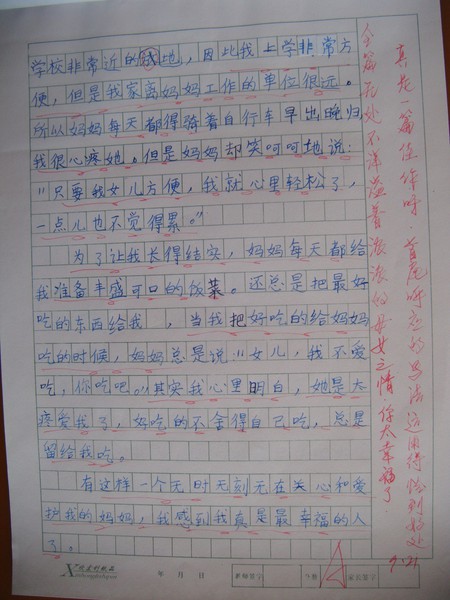 学校非常近的地，因比我上学非常方
便，但是我家离妈妈工作的单位很远。
所以妈妈每天都得骑着自行车早出晚归，
我很心疼她。但是妈妈却笑呵呵地说：
“只要我女儿方便，我就心里轻松了，
一点儿也不觉得累。”
为了让我长得结实，妈妈每天都给
我准备丰盛可口的饭菜。还总是把最好
吃的东西给我，当我把好吃的给妈妈
吃的时候，妈妈总是说“女儿，我不爱
吃，你吃吧。”其实我心里明白，她是太
疼爱我了，好吃的不舍得自己吃，总是
留给我吃。
有这样一个无时无刻无在关心和爱
护我的妈妈，我感到我真是最幸福的人
了。
真是一篇佳作呀，首尾呼应的写法运用得恰到好处
全篇无处不洋溢着浓浓的母女之情，你太幸福了
9.21
A
年 月 日
教师签字
家长签字